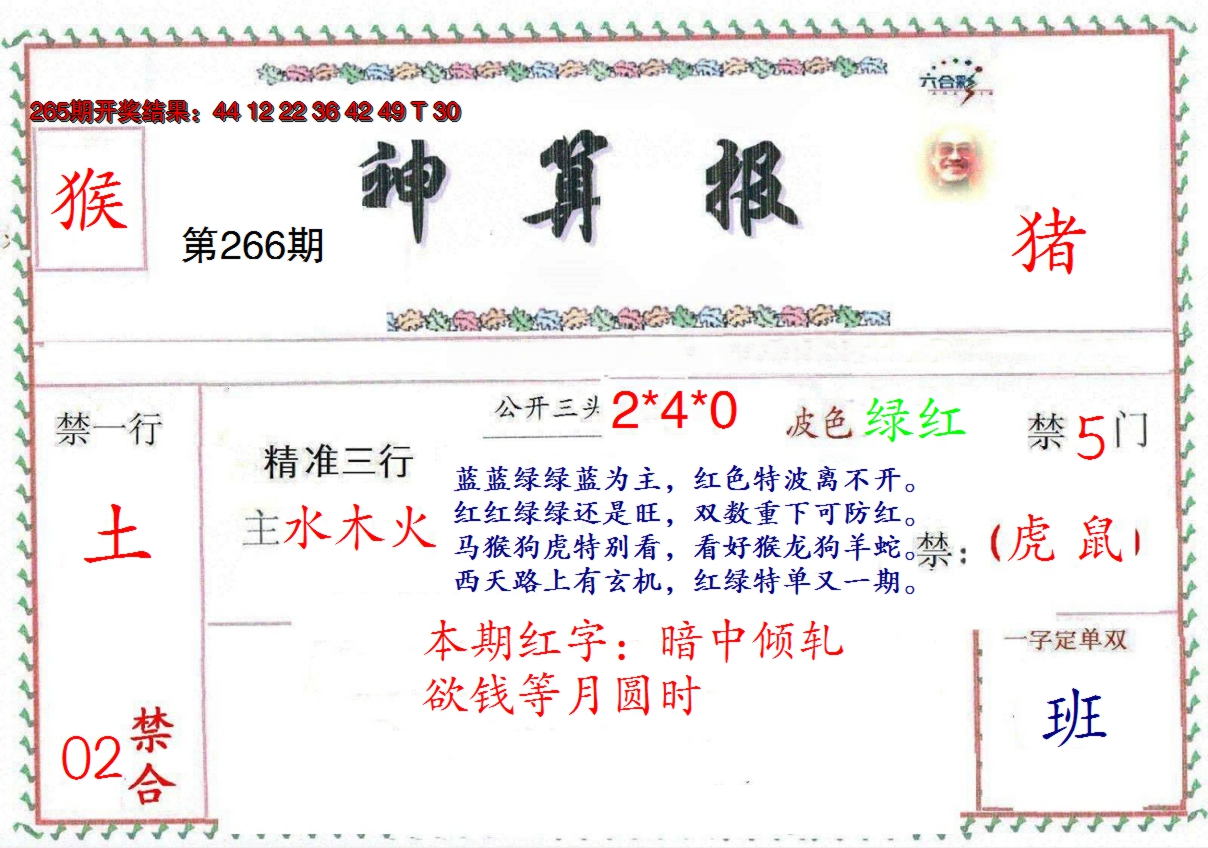 六合彩
265期开奖结果：44 12 22 36 42 49 T 30
神算报
猴
第266期
猪
公开三头 2*4*0
波色 绿红
禁一行
禁5门
精准三行
主水木火
土
蓝蓝绿绿蓝为主，红色特波离不开。
红红绿绿还是旺，双数重下可防红。
马猴狗虎特别看，看好猴龙狗羊蛇。
西天路上有玄机，红绿特单又一期。
禁：（虎 鼠）
本期红字：暗中倾轧
欲钱等月圆时
一字定单双
班
02 禁合